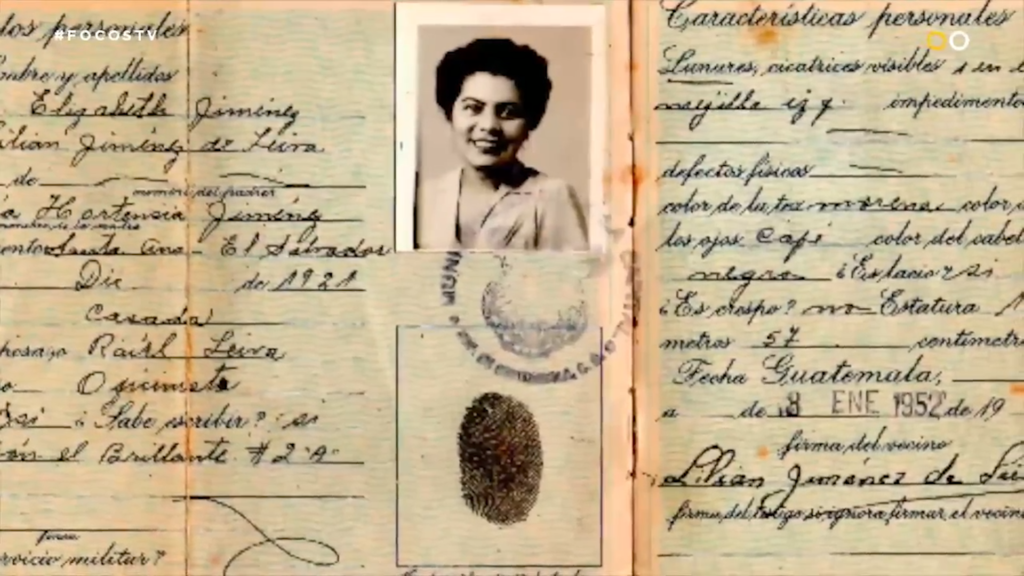 #FOCOSTV
los personales
ombre y apellidos
Elizabeth Jiménez
ilian Jiménez de Leiva
de
nombre del padre
a Hortensia Jiménez
nombre de la madre
ento Santa Ana - El Salvador
Dic de 1921
Casada
posa, o Raúl Leiva
o Oficinista
si ¿Sabe escribir? si
ón el Brillante #2"A"
firma
rvicio militar?
Características personales
Lunares, cicatrices visibles 1 en
mejilla izq. impedimento
defectos físicos
color de la tez morena color
los ojos Café color del cabel
negro ¿Es lacio? si
¿Es crespo? no Estatura 1
metros 57 centímetr
Fecha Guatemala,
a de 8 ENE 1952 de 19
firma del vecino
Lilian Jiménez de Lei
firma del testigo si ignora firmar el vecino